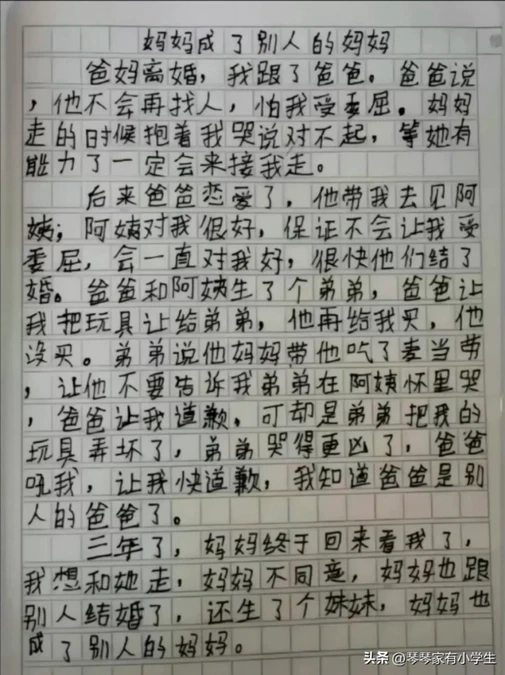 妈妈成了别人的妈妈
爸妈离婚,我跟了爸爸。爸爸说
,他不会再找人,怕我受委屈。妈妈
走的时候抱着我哭说对不起,等她有
能力了一定会来接我走。
后来爸爸恋爱了,他带我去见阿
姨;阿姨对我很好,保证不会让我受
委屈,会一直对我好,很快他们结了
婚。爸爸和阿姨生了个弟弟,爸爸让
我把玩具让给弟弟,他再给我买,他
没买。弟弟说他妈妈带他吃了麦当劳
,让他不要告诉我弟弟在阿姨怀里哭
,爸爸让我道歉,可却是弟弟把我的
玩具弄坏了,弟弟哭得更凶了,爸爸
吼我,让我快道歉,我知道爸爸是别
人的爸爸了。
三年了,妈妈终于回来看我了,
我想和她走,妈妈不同意,妈妈也跟
别人结婚了,还生了个妹妹,妈妈也
成了别人的妈妈。
头条 @琴琴家有小学生